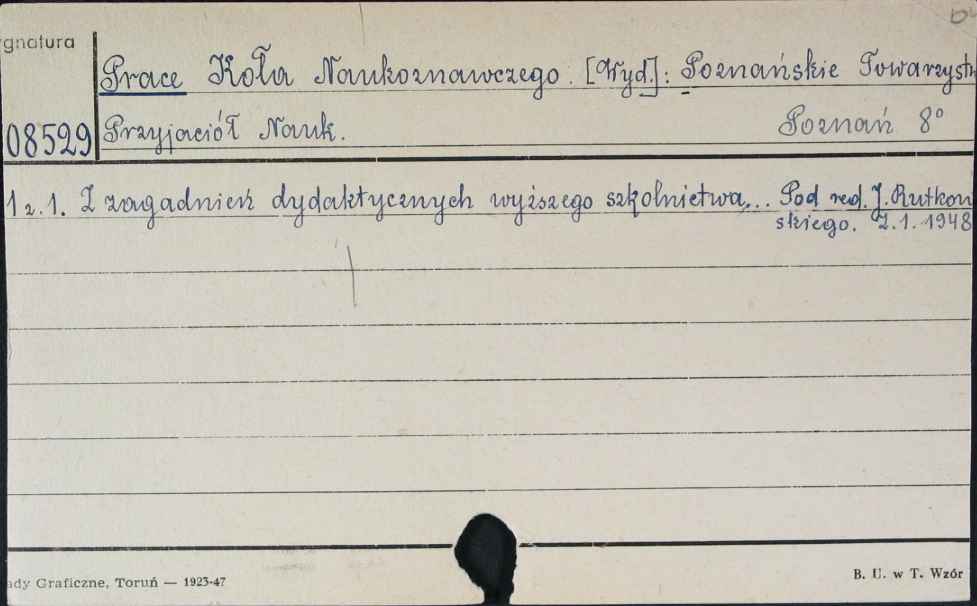 gnatura
Prace Koła Naukoznawczego. [Wyd.]: Poznańskie Towarzyst
08529 Przyjaciół Nauk. Poznań 8°
1 z. 1. Z zagadnień dydaktycznych wyższego szkolnictwa... Pod red. J. Rutkow
skiego. Z. 1. 1948
ady Graficzne, Toruń — 1923-47
B. U. w T. Wzór